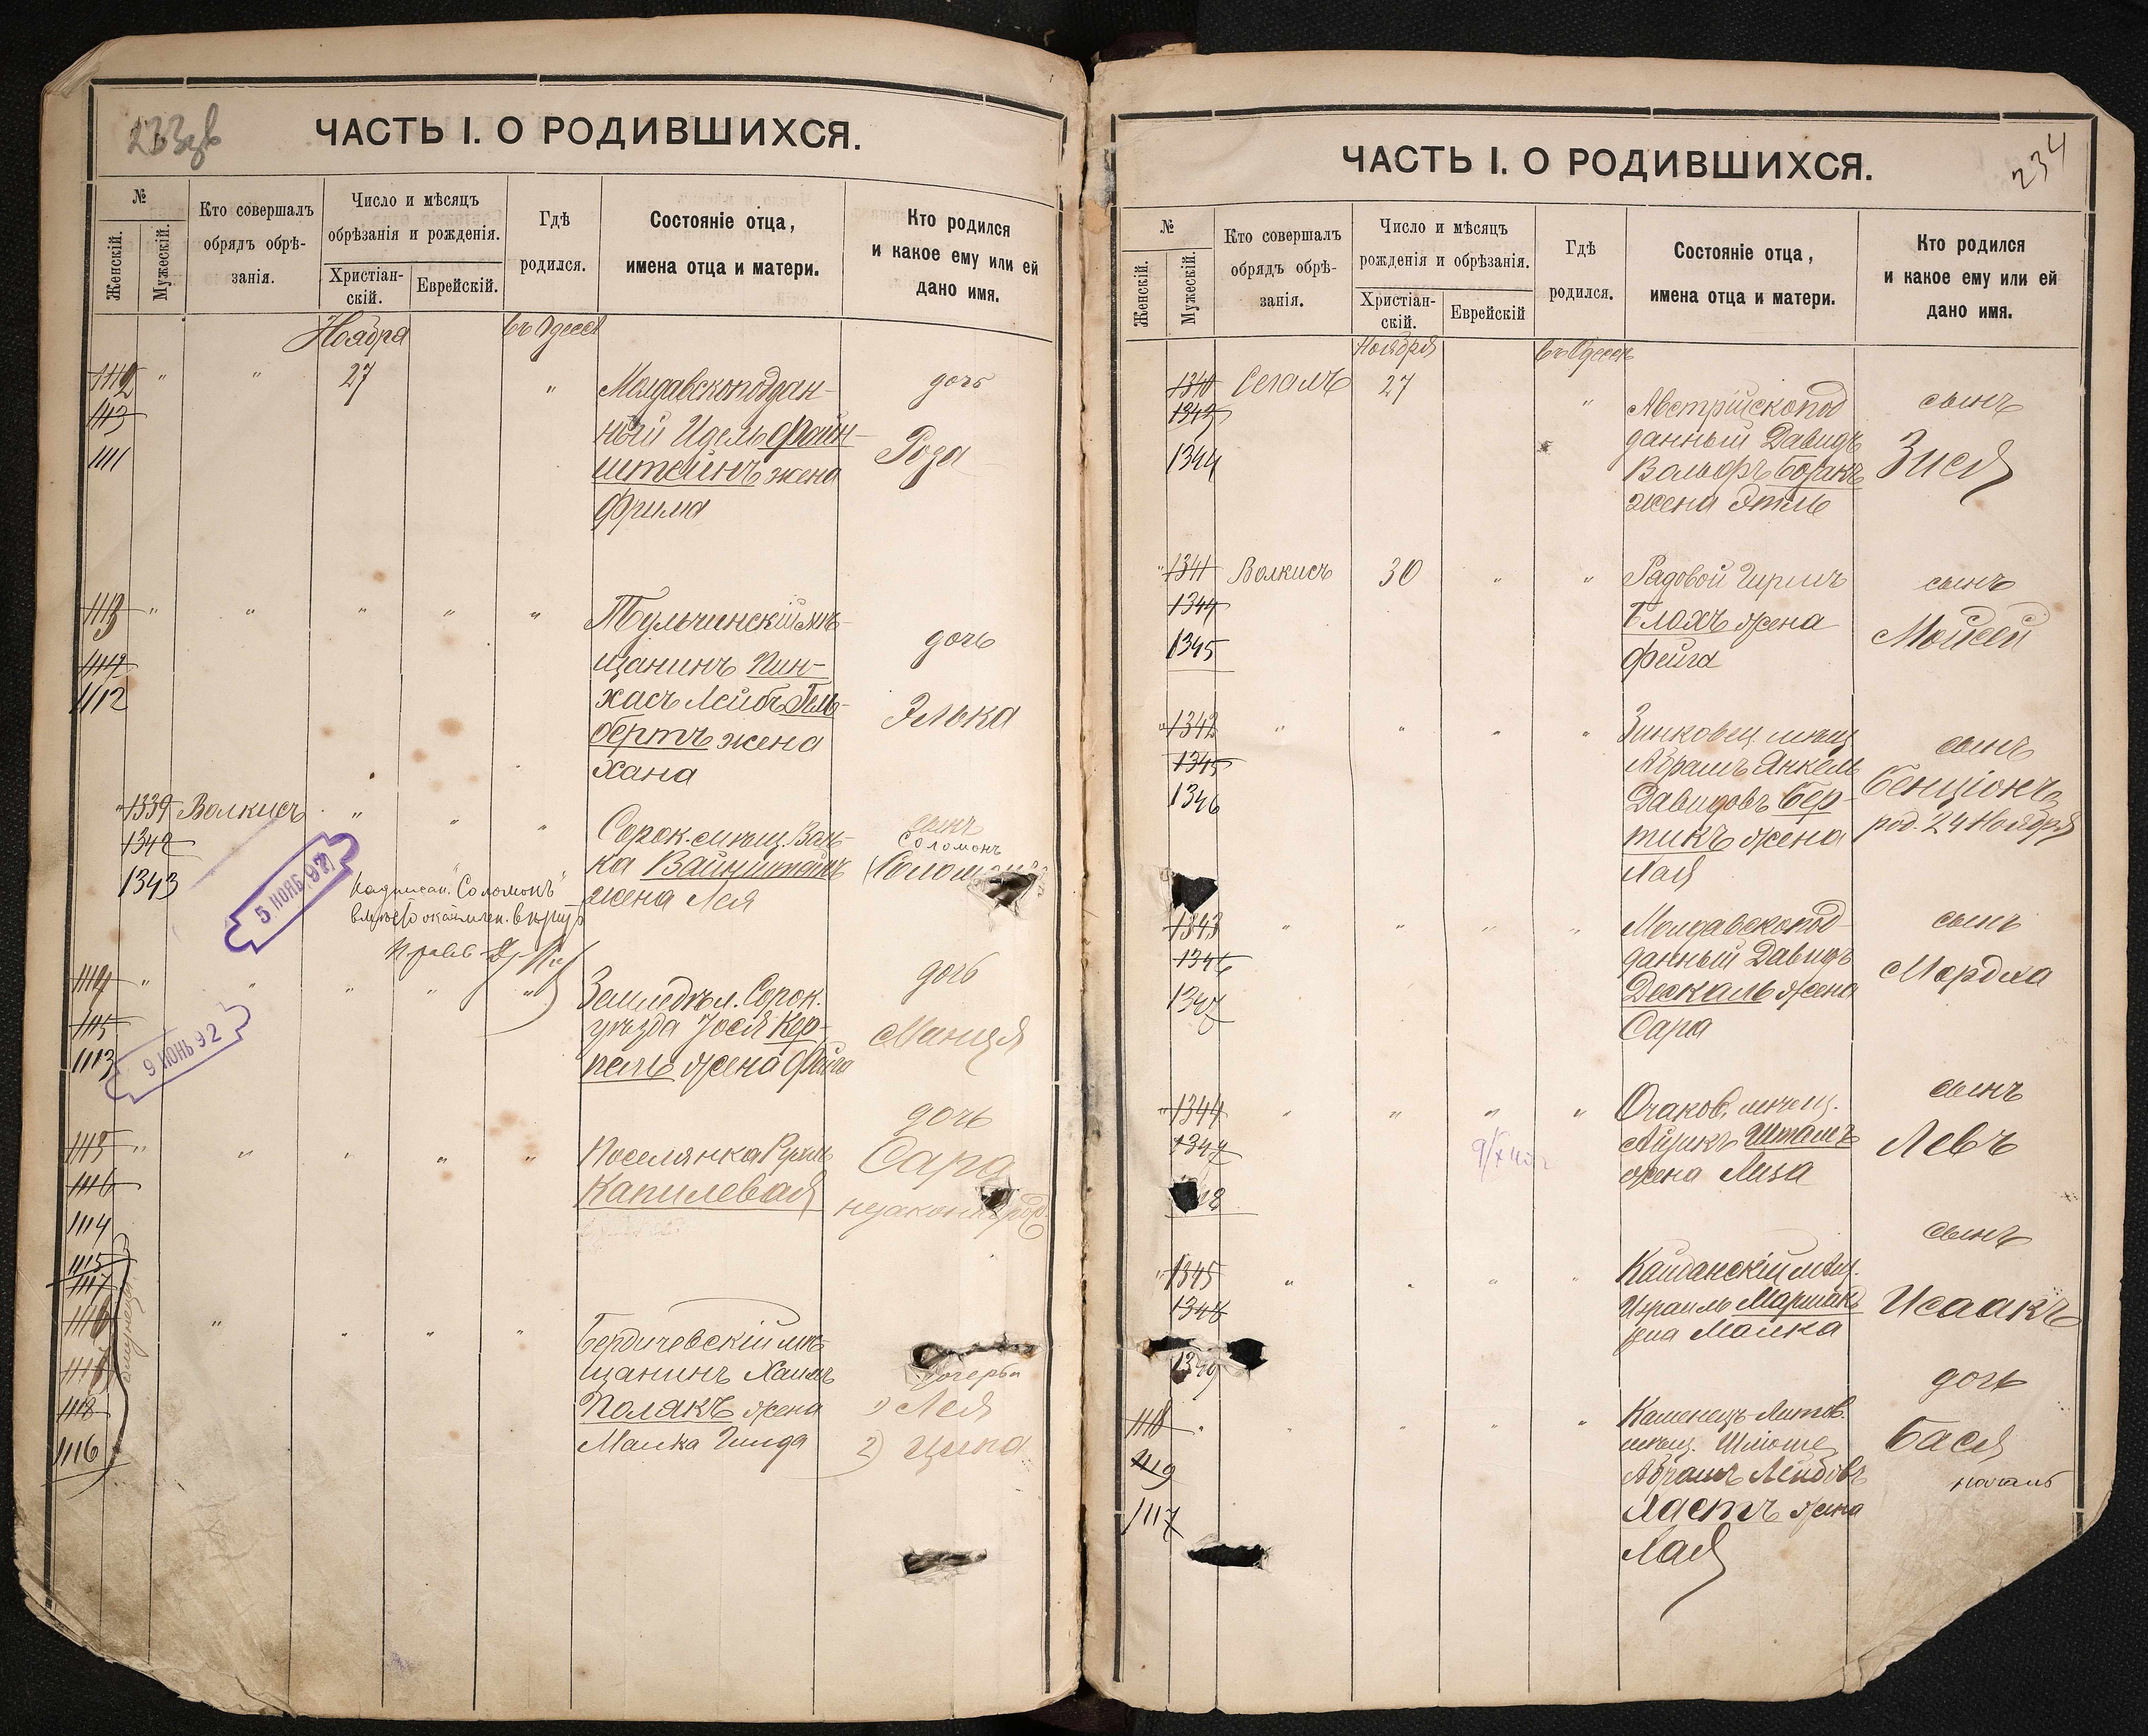 233 об
ЧАСТЬ I. О РОДИВШИХСЯ.
№
Женскій.
Мужескій.
Кто совершалъ
обрядъ обрѣ-
занія.
Число и мѣсяцъ
обрѣзанія и рожденія.
Христіан-
скій.
Еврейскій.
Гдѣ
родился.
Состояніе отца,
имена отца и матери.
Кто родился
и какое ему или ей
дано имя.
Ноября
въ Одессѣ
1112 " " 27 " Молдавскоподдан-
ный Идель Файн-
штейнъ жена
Фрима
дочь
Роза
1113
1111
1113 " " " " " Тульчинскій мѣ-
щанинъ Пин-
хасъ Лейбъ Гель-
бертъ жена
Хана
дочь
Элька
1112
" 1339 Волкисъ " " " Сорок. мѣщ.
ка Вайнштейнъ
жена Лея
сынъ
Соломонъ
1342
1343
5 НОЯБ. 97
Надписан. "Соломонъ"
1114 " " " " " Земледѣл. Сорок.
уѣзда Іося Кер-
пель жена Фейга
дочь
Маня
1115
1113
9 ИЮНЬ 92
1115 " " " " " Поселянка Рухль
Капилевая
дочь
Сара
незаконнорож.
1116
1114
1115
1117
1116
" " " " Бердичевскій мѣ-
щанинъ Хаимъ
Полякъ жена
Малка Гинда
дочери
1) Лея
2) Ципа
1118
1116
234
ЧАСТЬ I. О РОДИВШИХСЯ.
№
Женскій.
Мужескій.
Кто совершалъ
обрядъ обрѣ-
занія.
Число и мѣсяцъ
рожденія и обрѣзанія.
Христіан-
скій.
Еврейскій
Гдѣ
родился.
Состояніе отца,
имена отца и матери.
Кто родился
и какое ему или ей
дано имя.
Ноября
въ Одессѣ
1340 Сегалъ 27 " Австрійскопод
данный Давидъ
Вольфъ Боракъ
жена Этль
сынъ
Зися
1343
1344
" 1341 Волкисъ 30 " " Рядовой Гершъ
Блохъ жена
Фейга
сынъ
Мойсей
1344
1345
" 1342 " " " " Зинковец. мѣщ.
Абрамъ Янкель
Давидовъ Бер-
тикъ жена
Лая
сынъ
Бенціонъ
род. 24 Ноября
1345
1346
1343 " " " " Молдавскопод-
данный Давидъ
Дескаль жена
Сара
сынъ
Мордха
1346
1347
" 1344 " " " " Очаков. мѣщ.
Айзикъ Штамъ
жена Лиза
сынъ
Левъ
1347
" 1345 " " " " Кайданскій мѣщ.
Израиль Маршакъ
жена Малка
сынъ
Исаакъ
1348
1349
1118 " " " " " Каменецъ-Литов.
мѣщ. Шлиоме
Абрамъ Лейбовъ
Ластъ жена
Лая
дочь
Бася
1119
1117